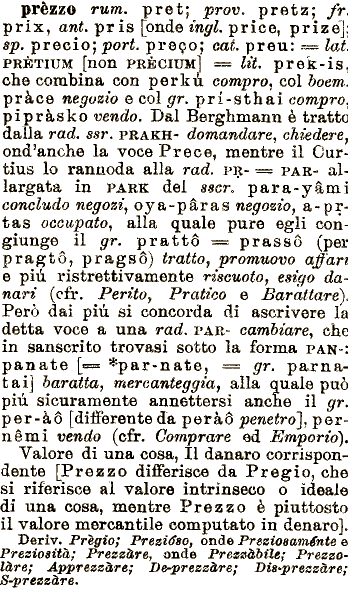 prèzzo rum. pret; prov. pretz; fr.
prix, ant. pris [onde ingl. price, prize];
sp. precio; port. preço; cat. preu: = lat.
PRÈTIUM [non PRÈCIUM] = lit. prek-is,
che combina con perkù compro, col boem.
pràce negozio e col gr. prí-sthai compro,
pipràsko vendo. Dal Berghmann è tratto
dalla rad. ssr. PRAKH- domandare, chiedere,
ond'anche la voce Prece, mentre il Cur-
tius lo rannoda alla rad. PṚ- = PAR- al-
largata in PARK del sscr. para-yâmi
concludo negozi, oya-pâras negozio, a-pṛ-
tas occupato, alla quale pure egli con-
giunge il gr. prattô = prassô (per
pragtô, pragsô) tratto, promuovo affari
e più ristrettivamente riscuoto, esigo da-
nari (cfr. Perito, Pratico e Barattare).
Però dai più si concorda di ascrivere la
detta voce a una rad. PAR- cambiare, che
in sanscrito trovasi sotto la forma PAN-:
panate [= *par-nate, = gr. parna-
tai] baratta, mercanteggia, alla quale può
più sicuramente annettersi anche il gr.
per-àô [differente da peràô penetro], per-
nêmi vendo (cfr. Comprare ed Emporio).
Valore di una cosa, Il danaro corrispon-
dente [Prezzo differisce da Pregio, che
si riferisce al valore intrinseco o ideale
di una cosa, mentre Prezzo è piuttosto
il valore mercantile computato in denaro].
Deriv. Prègio; Prezióso, onde Preziosaménte e
Preziosità; Prezzàre, onde Prezzàbile; Prezzo-
làre; Apprezzàre; De-prezzàre; Dis-prezzàre;
S-prezzàre.